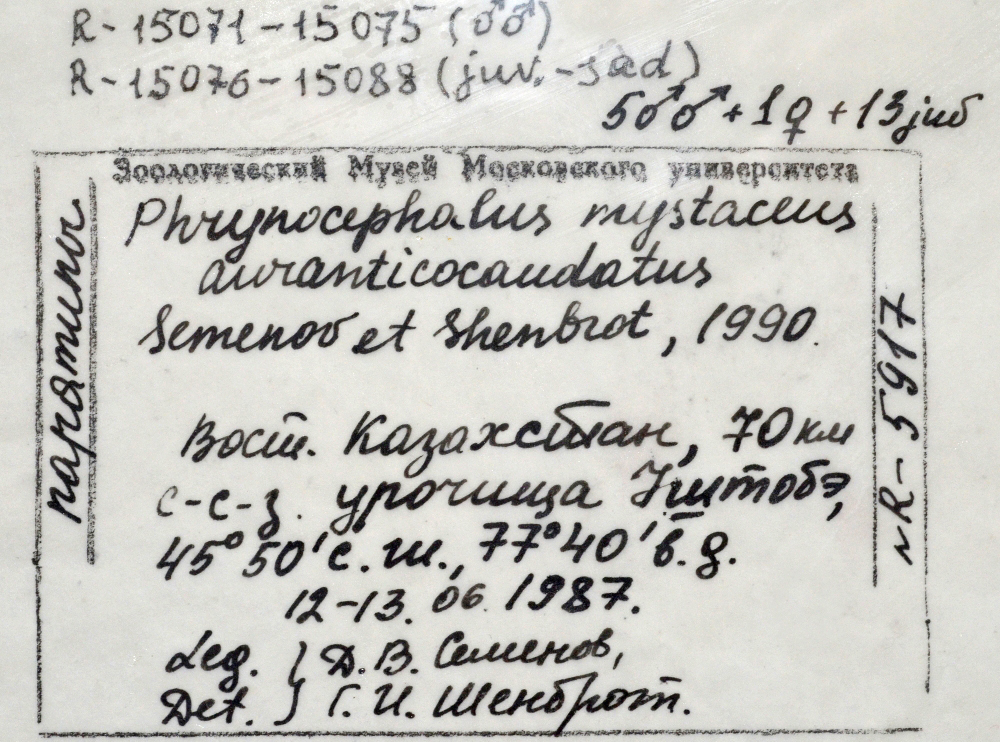 R-15071-15075 (♂♂)
R-15076-15088 (juv.-sad)
5♂♂+1♀+13juv
Зоологический Музей Московского университета
Phrynocephalus mystaceus
auranticocaudatus
Semenov et Shenbrot, 1990.
Вост. Казахстан, 70 км
с-с-з. урочища Уштобэ,
45°50'с.ш., 77°40'в.д.
12-13. 06. 1987.
Leg. } Д.В. Семенов,
Det. } Г.И. Шенброт.
паратипы
NR-5917